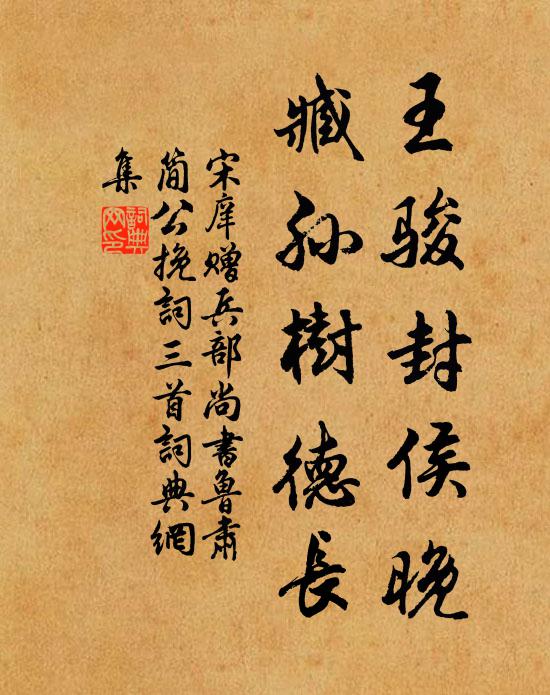 王骏封侯晚
臧孙樹德長
宋庠赠兵部尚書魯肅
简公挽詞三首詞典網
集
詞典
网印